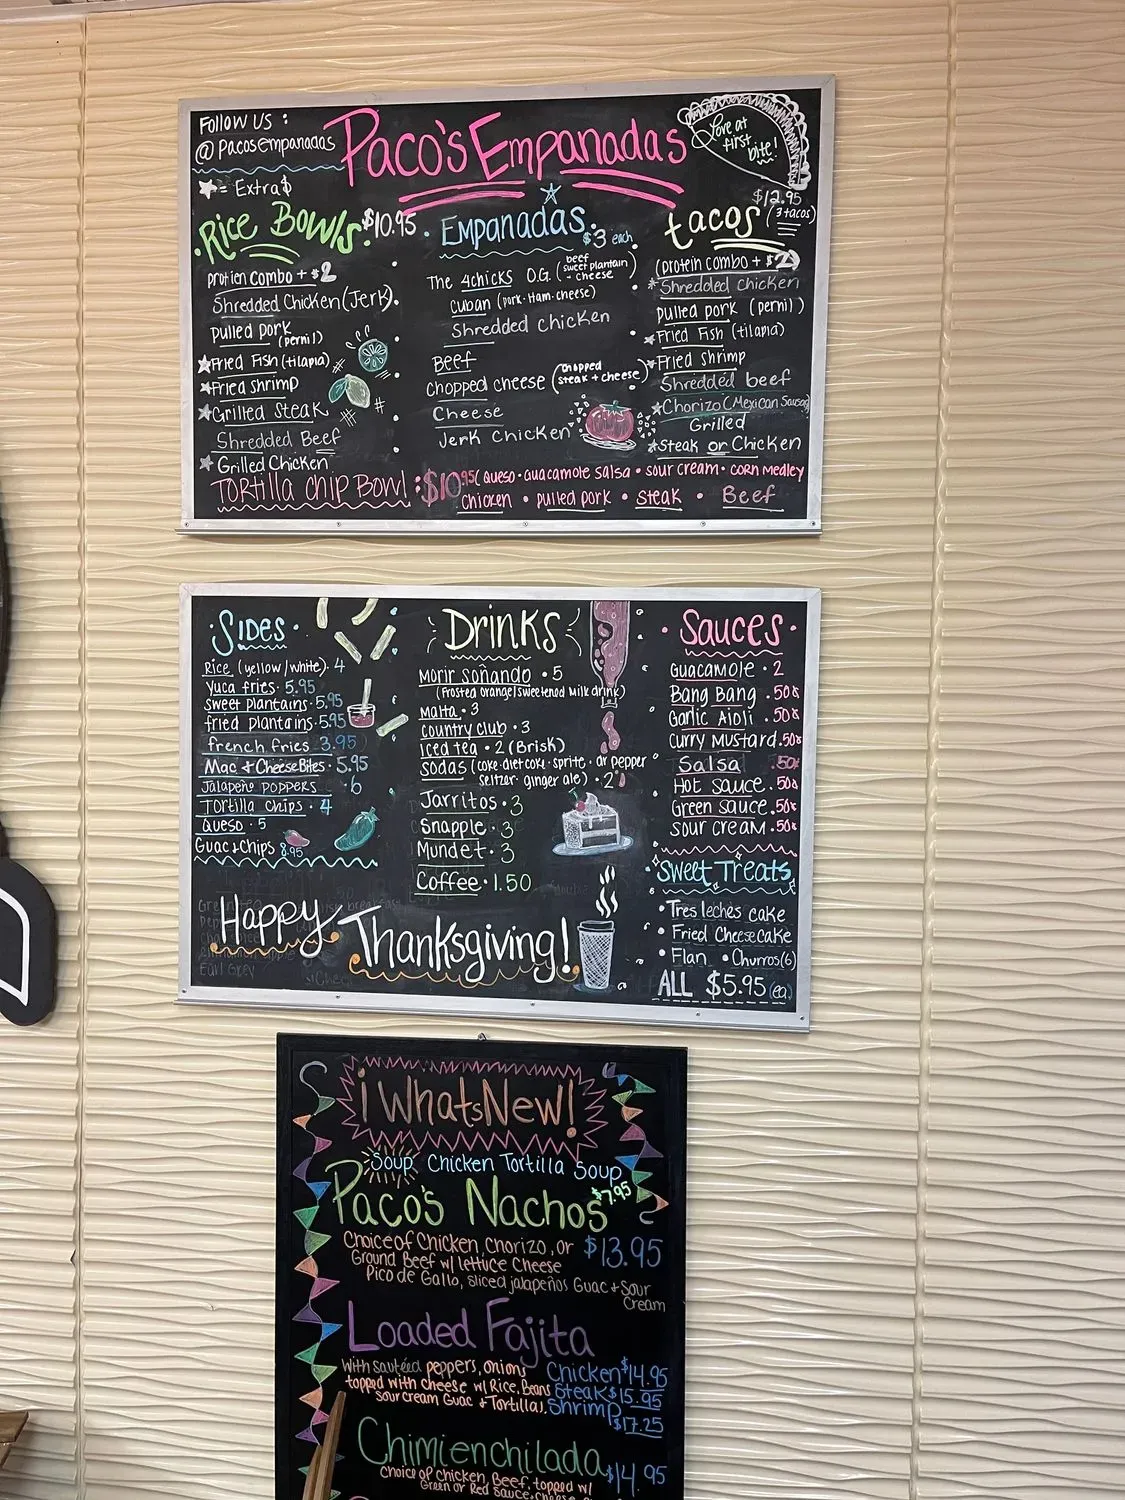 Follow us :
@pacosempanadas
Paco's Empanadas
Love at
first
bite!
★ = Extra $
Rice Bowls $10.95
protien combo + $2
Shredded Chicken (Jerk)
pulled pork
(pernil)
★ Fried Fish (tilapia)
★ Fried shrimp
★ Grilled Steak
Shredded Beef
★ Grilled Chicken
Empanadas
$3 each
The 4chicks O.G. (beef
sweet plantain
- cheese)
Cuban (pork · Ham · cheese)
Shredded chicken
Beef
Chopped cheese (chopped
steak + cheese)
Cheese
Jerk Chicken
$12.95
tacos (3 tacos)
(protein combo + $2)
★ Shredded chicken
pulled pork (pernil)
★ Fried Fish (tilapia)
★ Fried shrimp
Shredded beef
★ Chorizo (Mexican Sausag
Grilled
★ Steak or Chicken
Tortilla Chip Bowl : $10.95 (Queso · Guacamole salsa · sour cream · corn medley
Chicken • pulled pork • Steak • Beef
Sides
Rice (yellow/white) · 4
Yuca fries · 5.95
sweet plantains · 5.95
fried plantains · 5.95
french fries 3.95
Mac + Cheese Bites · 5.95
Jalapeño poppers · 6
Tortilla chips · 4
Queso · 5
Guac + Chips 8.95
Drinks
Morir soñando · 5
(Frosted orange/sweetened milk drink)
Malta · 3
country club · 3
Iced tea · 2 (Brisk)
sodas (coke · diet coke · sprite · dr pepper
seltzer · ginger ale) · 2
Jarritos · 3
Snapple · 3
Mundet · 3
Coffee · 1.50
Sauces
Guacamole · 2
Bang Bang · .50¢
Garlic Aioli · .50¢
Curry Mustard · .50¢
Salsa .50¢
Hot sauce · .50¢
Green sauce · .50¢
sour cream · .50¢
Sweet Treats
• Tres leches cake
• Fried Cheesecake
• Flan • Churros (6)
ALL $5.95 (ea.)
Earl Grey
Happy Thanksgiving!
¡ Whats New!
Soup Chicken Tortilla Soup
$7.95
Paco's Nachos
Choice of Chicken, Chorizo, or $13.95
Ground Beef w/ lettuce Cheese
Pico de Gallo, sliced jalapeños Guac + Sour
Cream
Loaded Fajita
With sautéed peppers, onions Chicken $14.95
topped with cheese w/ Rice, Beans Steak $15.95
sour cream Guac + Tortillas. Shrimp
$17.25
Chimienchilada
$14.95
Choice of chicken, Beef, topped w/
Green or Red Sauce, cheese